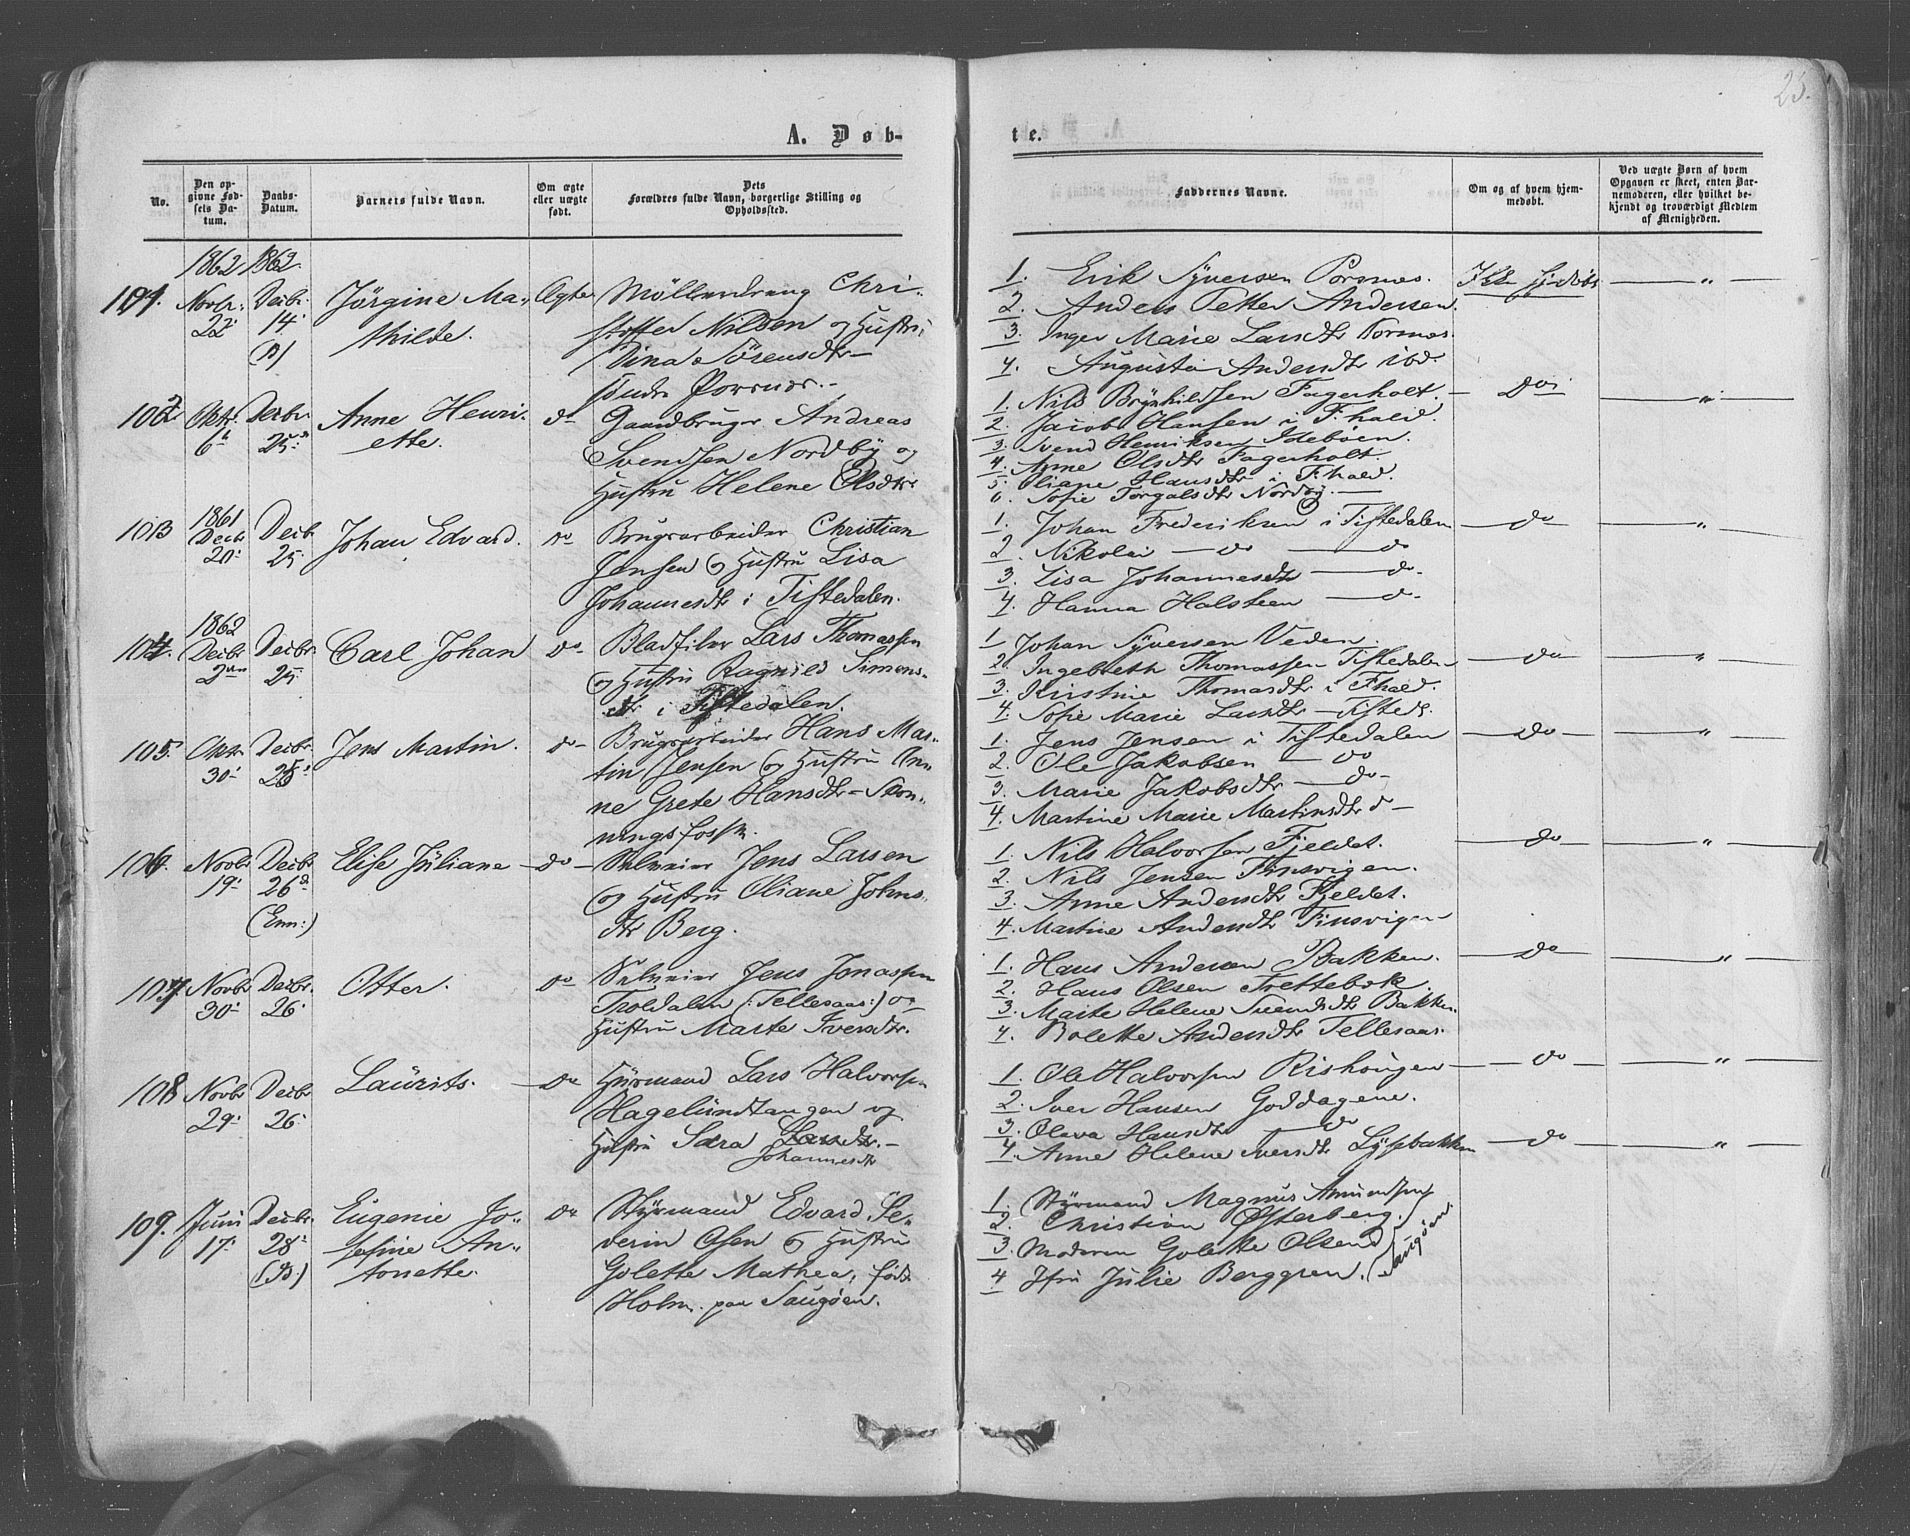 25.
A. Døb-
te.
No.
Den op-
givne Fød-
sels Da-
tum.
Daabs-
Datum.
Barnets fulde Navn.
Om ægte
eller uægte
født.
Dets
Forældres fulde Navn, borgerlige Stilling og
Opholdssted.
Faddernes Navne.
Om og af hvem hjem-
medøbt.
Ved uægte Børn af hvem
Opgaven er skeet, enten Bar-
nemoderen, eller hvilket be-
kjendt og troværdigt Medlem
af Menigheden.
1862 1862.
101. Novbr: 22 Decbr: 14 (B)
Jörgine Ma-
thilde.
Ægte
Möllerdreng Chri-
stoffer Nilsen og Hustru
Dina Sörensdtr
söndre Porsnes.
1. Erik Syversen Porsnes.
2. Anders Petter Andersen
3. Inger Marie Larsdtr Porsnes
4. Augusta Andersdtr ibd.
Ikke hjdöbt
"
102 Oktr. 6 Decbr 25
Anne Henri-
ette.
do
Gaardbruger Andreas
Svendsen Nordby og
Hustru Helene Olsdtr
1. Nils Brynhildsen Fagerholt.
2. Jacob Hansen i F.hald.
3. Svend Henriksen Ideboen.
4. Anne Olsdtr Fagerholt.
5. Oliane Hansdtr i F.hald.
6. Sofie Torgalsdtr Nordby.
Do
"
103 1861 Decbr 20 Decbr 25
Johan Edvard.
do
Brugsarbeider Christian
Jensen og Hustru Lisa
Johannesdtr i Tistedalen.
1. Johan Frederiksen i Tistedalen
2. Nikolai do do
3. Lisa Johannesdtr do
4. Hanna Halsteen do
do
"
104. 1862 Decbr 2 Decbr. 25
Carl Johan
do
Bladfiler Lars Thomassen
og Hustru Ragnild Simons-
dtr i Tistedalen.
1 Johan Syversen Veden.
2 Ingebreth Thomassen Tistedalen
3. Kirstine Thomasdtr i F.hald.
4. Sofie Marie Larsdtr Tisted.
do
"
105 Oktr 30 Decbr. 25
Jens Martin.
do
Brugsarbeider Hans Mar-
tin Jensen og Hustru An-
ne Grete Hansdtr Skon-
ningsfossen.
1. Jens Jensen i Tistedalen
2. Ole Jakobsen do
3. Marie Jakobsdtr do
4. Martine Marie Martinsdtr do
do
"
106. Novbr 19 Decbr 26 (Enn:)
Elise Juliane
do
Selveier Jens Larsen
og Hustru Oliane Johns-
dtr Berg.
1. Nils Halvorsen Fjeldet.
2. Nils Jensen Tinsvigen.
3. Anne Andersdtr Fjeldet.
4. Martine Andersdtr Tinsvigen
do
"
107 Novbr 30 Decbr. 26
Otter.
do
Selveier Jens Jonassen
Troldalen (:Tellesaas:) og
Hustru Marte Iversdtr.
1. Hans Andersen Bakken.
2. Hans Olsen Trettebok.
3. Marte Helene Svendsdtr Bakken
4. Bolette Andersdtr Tellesaas.
do
"
108 Novbr 29 Decbr 26
Laurits.
do
Huusmand Lars Halvorsen
Hagelundtangen og
Hustru Sara Larsdtr.
Johannesdtr
1. Ole Halvorsen Rishougen
2. Iver Hansen Goddagene.
3. Olava Hansdtr do
4. Anne Helene Iversdtr Lysebakken
do
"
do
"
109. Juni 17 Decbr. 28 (B)
Eugenie Jo-
sefine An-
tonette.
do
Styrmand Edvard Se-
verin Olsen og Hustru
Golette Mathea, född
Holm paa Saugöen.
1. Styrmand Magnus Amundsen
2. Christian Österberg.
3. Moderen Golette Olsen
4 Jfru Julie Berggren.
Saugöen.